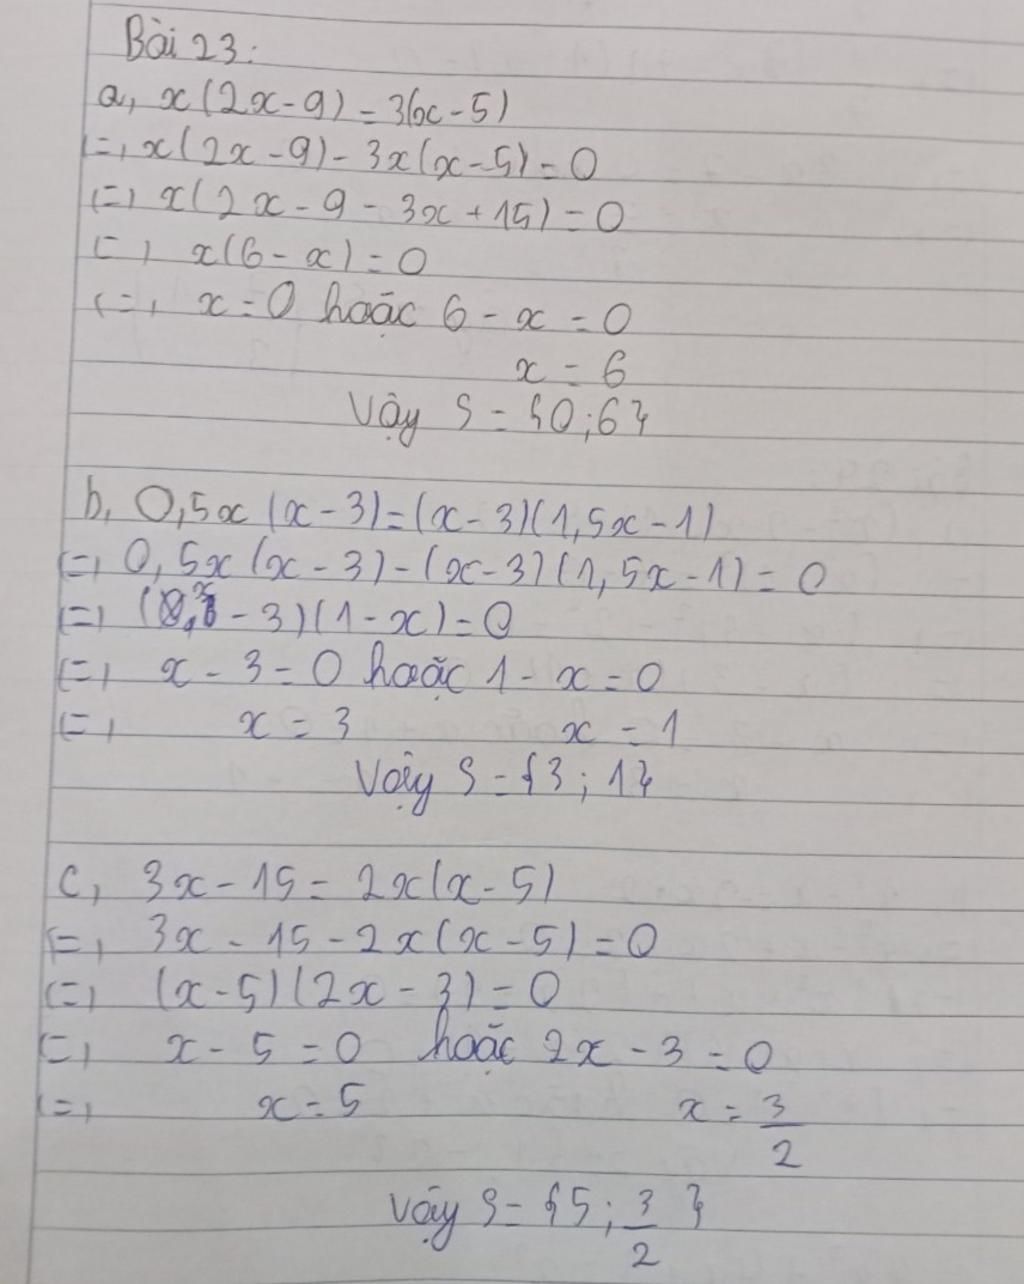 Bài 23:
a, x(2x-9)=3(x-5)
(=, x(2x-9)-3x(x-5)=0
(=) x(2x-9-3x+15)=0
(=) x(6-x)=0
(=, x=0 hoặc 6-x=0
x=6
Vậy S={0;6}
b, 0,5x(x-3)=(x-3)(1,5x-1)
(=, 0,5x(x-3)-(x-3)(1,5x-1)=0
(=) (x-3)(1-x)=0
(=, x-3=0 hoặc 1-x=0
(=, x=3 x=1
Vậy S={3;1}
c, 3x-15=2x(x-5)
(=, 3x-15-2x(x-5)=0
(=) (x-5)(2x-3)=0
(=, x-5=0 hoặc 2x-3=0
(=, x=5 x=3/2
Vậy S={5;3/2}